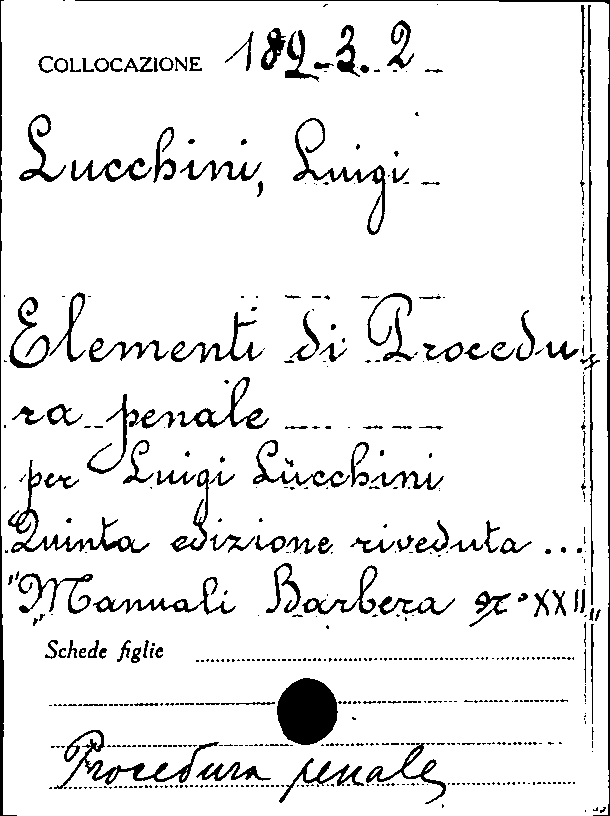 COLLOCAZIONE 189-3.2
Lucchini, Luigi
Elementi di Procedu-
ra penale
per Luigi Lucchini
Quinta edizione riveduta ...
"Manuali Barbera N° XXII"
Schede figlie
Procedura penale